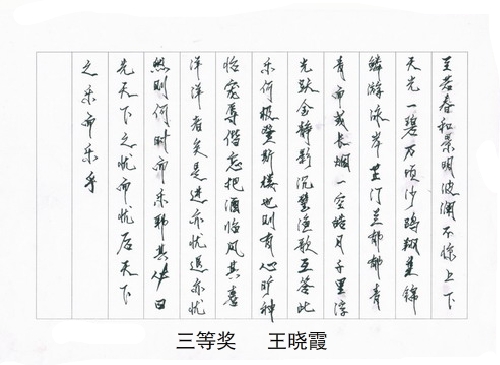 至若春和景明波澜不惊上下
天光一碧万顷沙鸥翔集锦
鳞游泳岸芷汀兰郁郁青
青而或长烟一空皓月千里浮
光跃金静影沉璧渔歌互答此
乐何极登斯楼也则有心旷神
怡宠辱偕忘把酒临风其喜
洋洋者矣是进亦忧退亦忧
然则何时而乐耶其必曰
先天下之忧而忧后天下
之乐而乐乎
三等奖 王晓霞